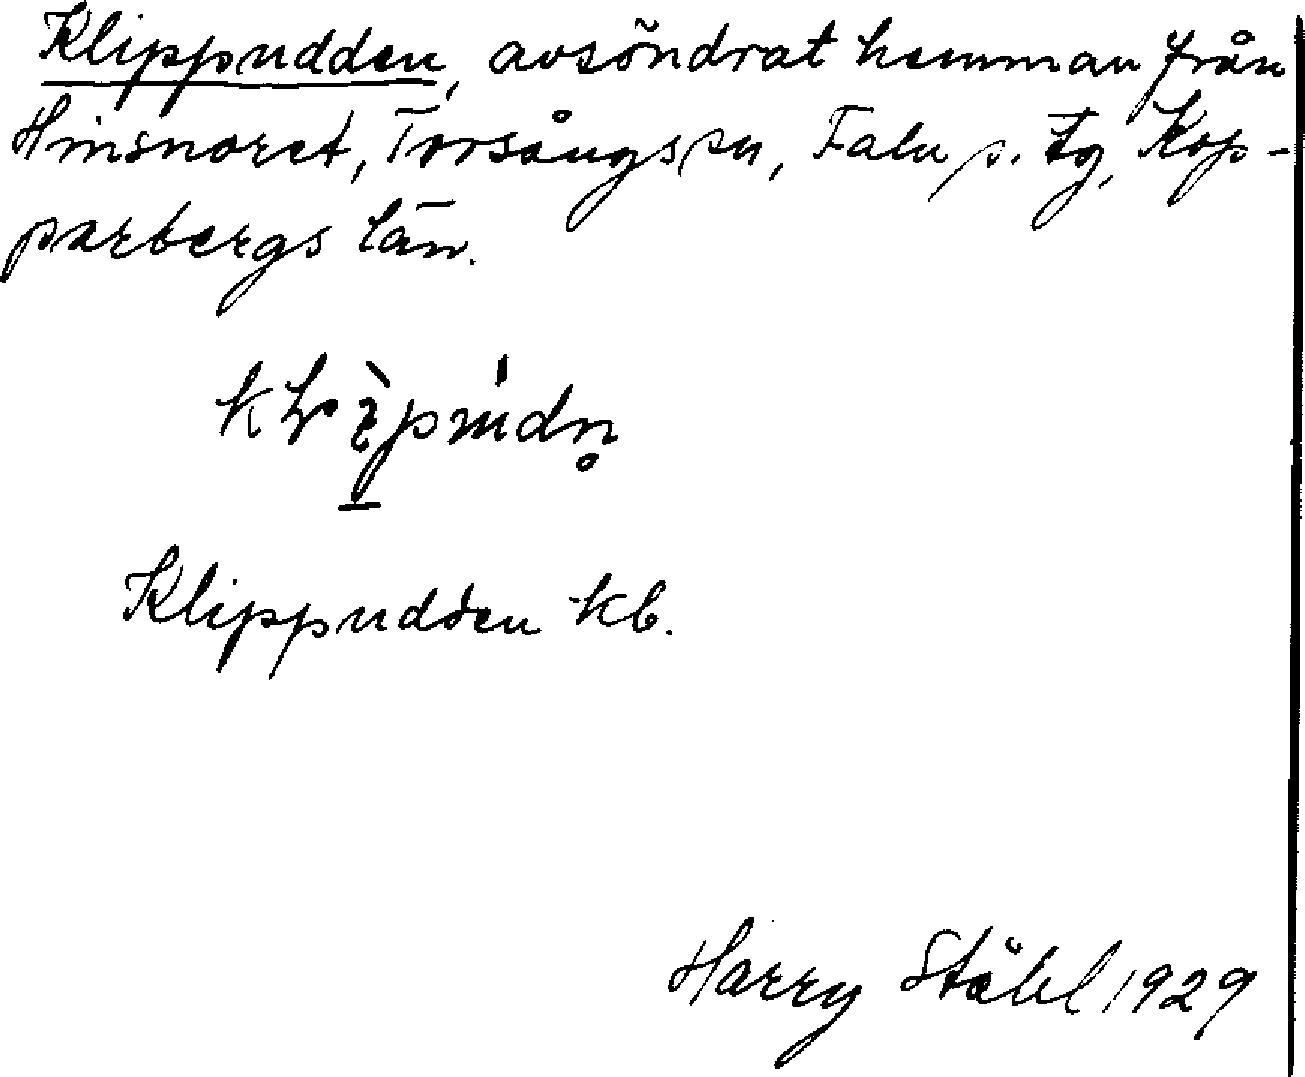 Klippudden, avsöndrat hemman från
Hinsnoret, Torsångs sn, Falu s. tg, Kop-
parbergs län.
Klippudden kb.
Harry Ståhl 1929